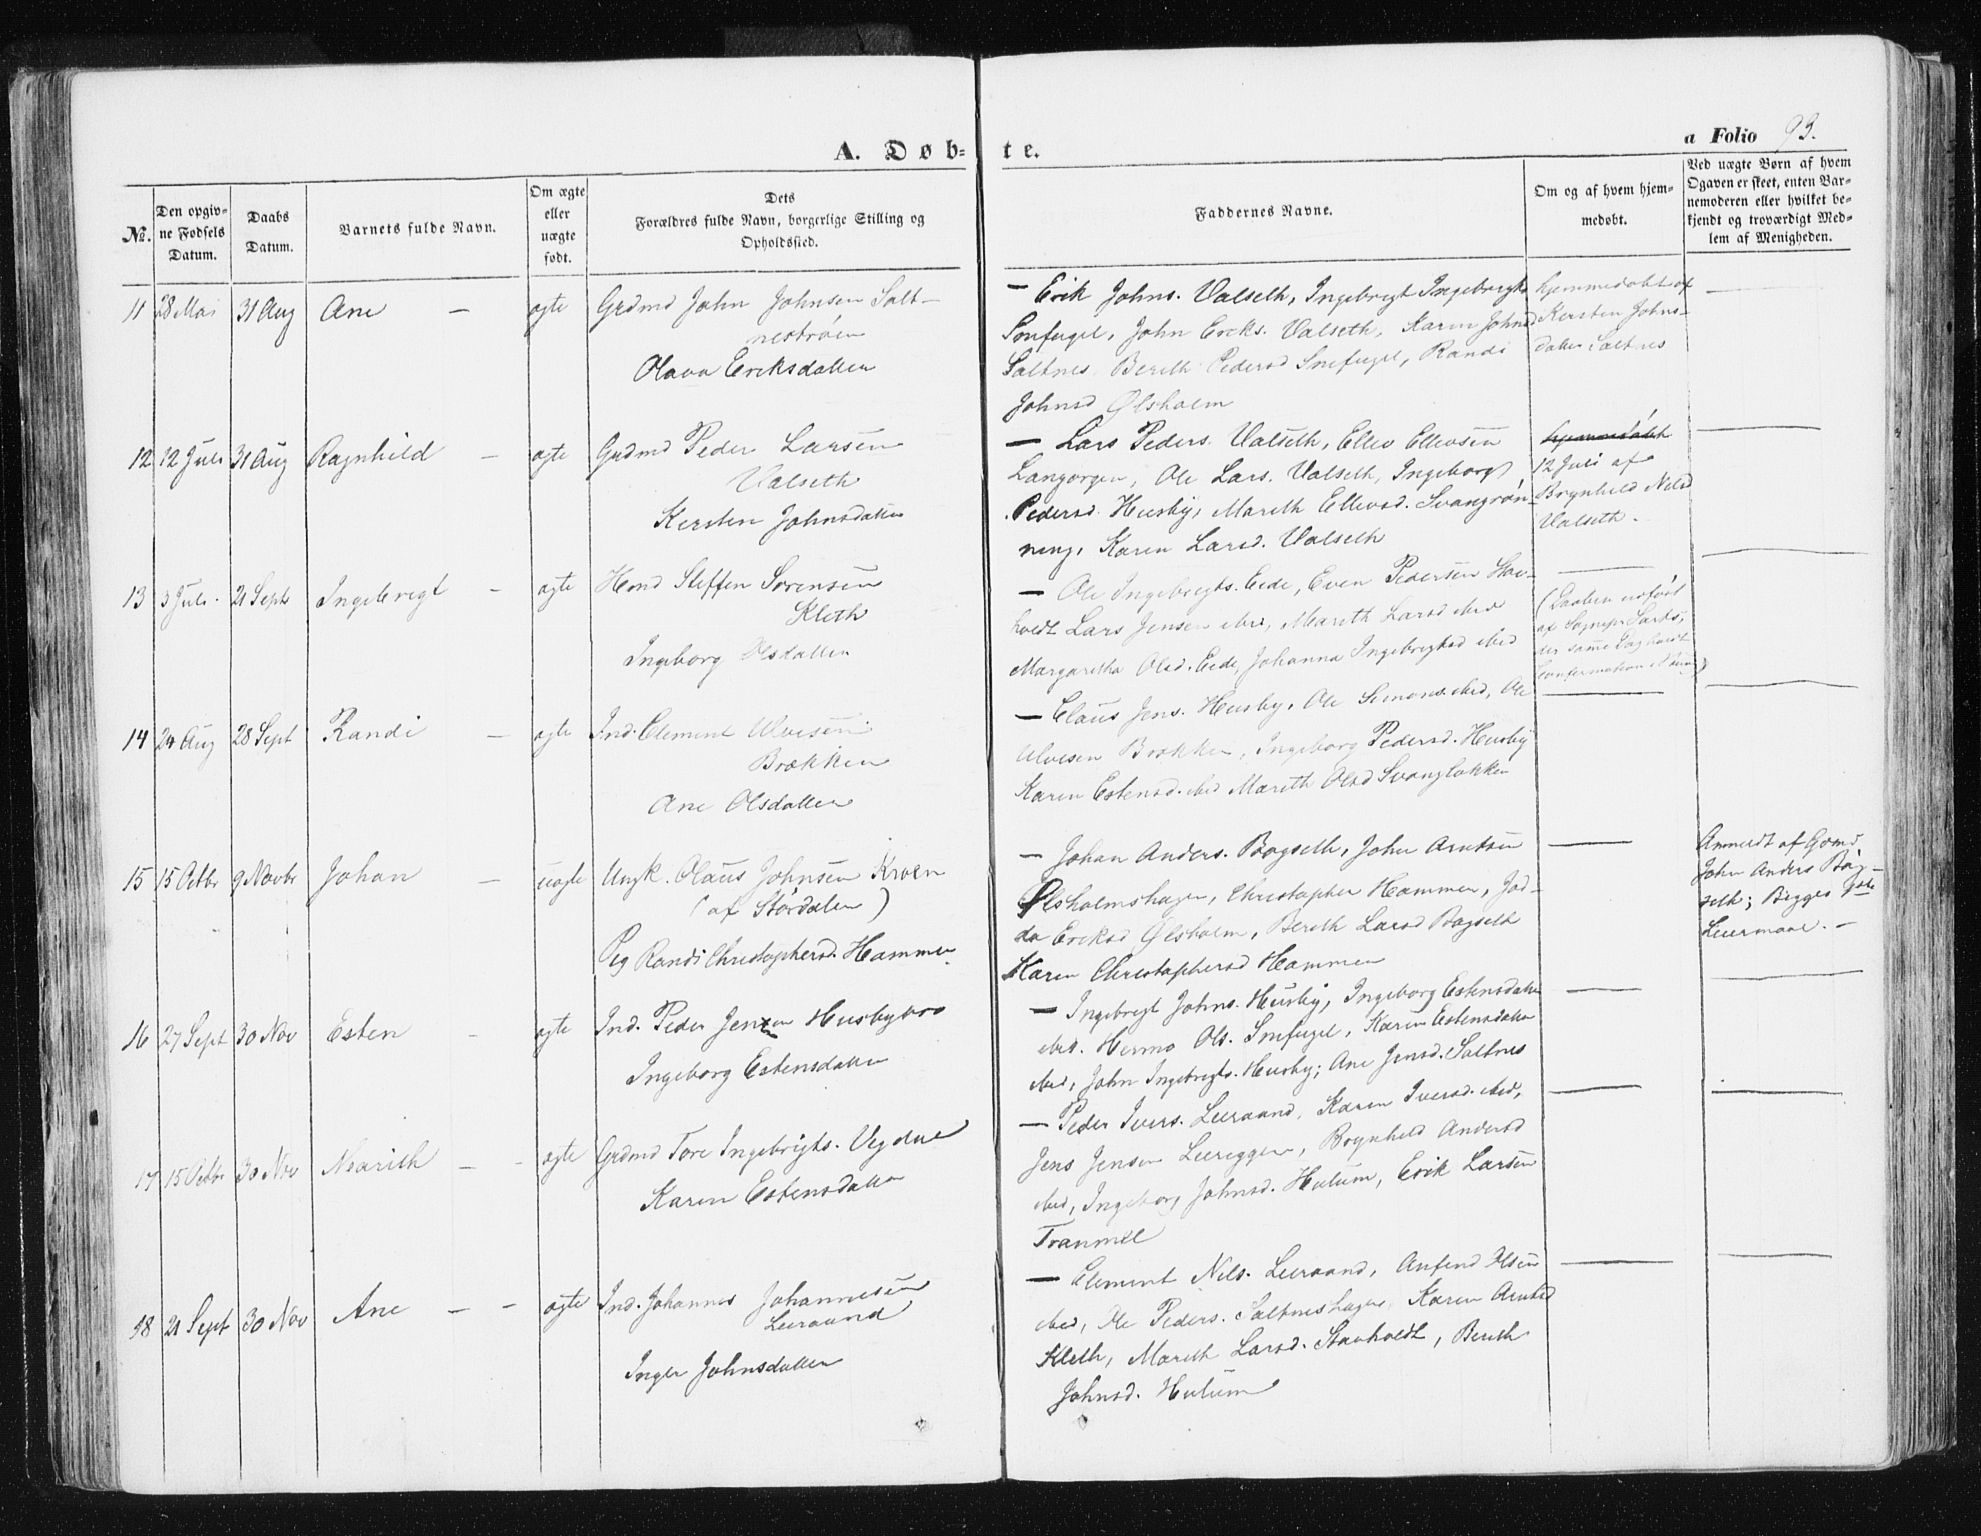 A. Døb- te.
a Folio 93.
No.
Den opgiv-
ne Fødsels
Datum.
Daabs
Datum.
Barnets fulde Navn.
Om ægte
eller
uægte
født.
Dets
Forældres fulde Navn, borgerlige Stilling og
Opholdssted.
Faddernes Navne.
Om og af hvem hjem-
medøbt.
Ved uægte Børn af hvem
Opgaven er skeet, enten Bar-
nemoderen eller hvilket be-
kjendt og troværdigt Med-
lem af Menigheden.
11 28 Mai 31 Aug Ane — ægte Grdmd John Johnsen Salt-
nestrøen
Olava Eriksdatter
— Erik Johns. Valseth, Ingebrigt Ingebrigts
Smfugel, John Eriks. Valseth, Karen Johnsd
Saltnes Berith Pedersd Smefugel, Randi
Johnsd Ølsholm
hjemmedøbt af
Kersten Johns-
datter Saltnes
12 12 Juli 31 Aug Ragnhild — ægte Grdmd Peder Larsen
Valseth
Kersten Johnsdatter
— Lars Peders. Valseth, Ellev Ellevsen
Langørgen, Ole Lars. Valseth, Ingeborg
Pedersd. Husby, Marith Ellevsd. Svangrøn-
ning, Karen Larsd. Valseth
hjemmedøbt
12 Juli af
Brynhild Nilsd
Valseth.
13 3 Juli 21 Septr Ingebrigt — ægte Hmd Steffen Sørensen
Kleth
Ingeborg Olsdatter
— Ole Ingebrigts. Eide, Even Pedersen Stav-
holdt Lars Jensen ibid, Marith Larsd ibid
Margaretha Olsd. Eide, Johanna Ingebrigtsd ibid
(Daaben udført
af Sognepr.
der samme Dag holdt
Confirmation)
14 24 Aug 28 Sept Randi — ægte Ind. Clement Ulvesen
Brækken
Ane Olsdatter
— Claus Jens. Husby, Ole Simons. ibid, Ole
Ulvesen Brækken, Ingeborg Pedersd. Husby
Karen Estensd. ibid Marith Olsd Svangløkken
15 15 Octbr 9 Novbr Johan — uægte Ungk. Olaus Johnsen Kroen
(af Størdalen)
Pig Randi Christophersd. Hammen
— Johan Anders. Bogseth, John Arntsen
Ølsholmshagen, Christopher Hammen,
Eriksd Ølsholm, Berith Larsd Bogseth
Karen Christophersd Hammen
Anmeldt af Grdmd.
John Anders Bog-
seth; Begges 1ste
Leiermaal. —
16 27 Sept 30 Nov Esten — ægte Ind. Peder Jensen Husbybro
Ingeborg Estensdatter
— Ingebrigt Johns. Husby, Ingeborg Estensdatter
ibid. Hermo Ols. Smfugel, Karen Estensdatter
ibid, John Ingebrigts. Husby; Ane Jensd. Saltnes
17 15 Octbr 30 Nov Marith — - ægte Grdmd Tore Ingebrigts. Vegdue
Karen Estensdatter
— Peder Ivers. Leeraand, Karen Iversd. ibid,
Jens Jensen Leereggen, Brynhild Andersd
ibid, Ingeborg Johnsd. Hulum, Erik Larsen
Tranmel
18 21 Sept 30 Nov Ane — - ægte Ind. Johannes Johannesen
Leeraand
Inger Johnsdatter
— Clement Nils. Leeraand, Anfind Olsen
ibid, Ole Peders. Saltneshagen, Karen Arntsd
Kleth, Marith Larsd. Stavholdt, Berith
Johnsd. Hulum